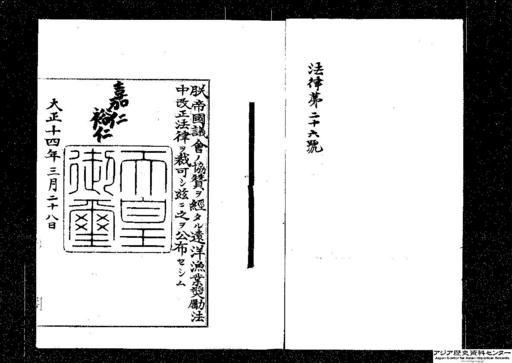 法律第二十六號
朕帝國議會ノ協贊ヲ經タル遠洋漁業奬勵法
中改正法律ヲ裁可シ玆ニ之ヲ公布セシム
嘉仁
裕仁
天皇
御璽
大正十四年三月二十八日
アジア歴史資料センター
Japan Center for Asian Historical Records